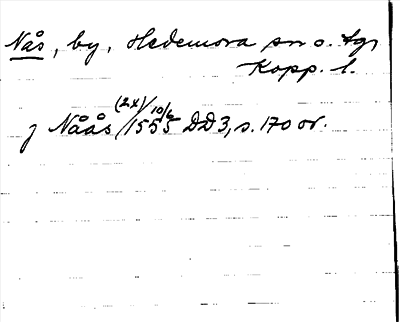 Nås, by, Hedemora sn o. tg,
Kopp. l.
j Nåås (2x) 10/6 1555 DD3, s. 170 or.